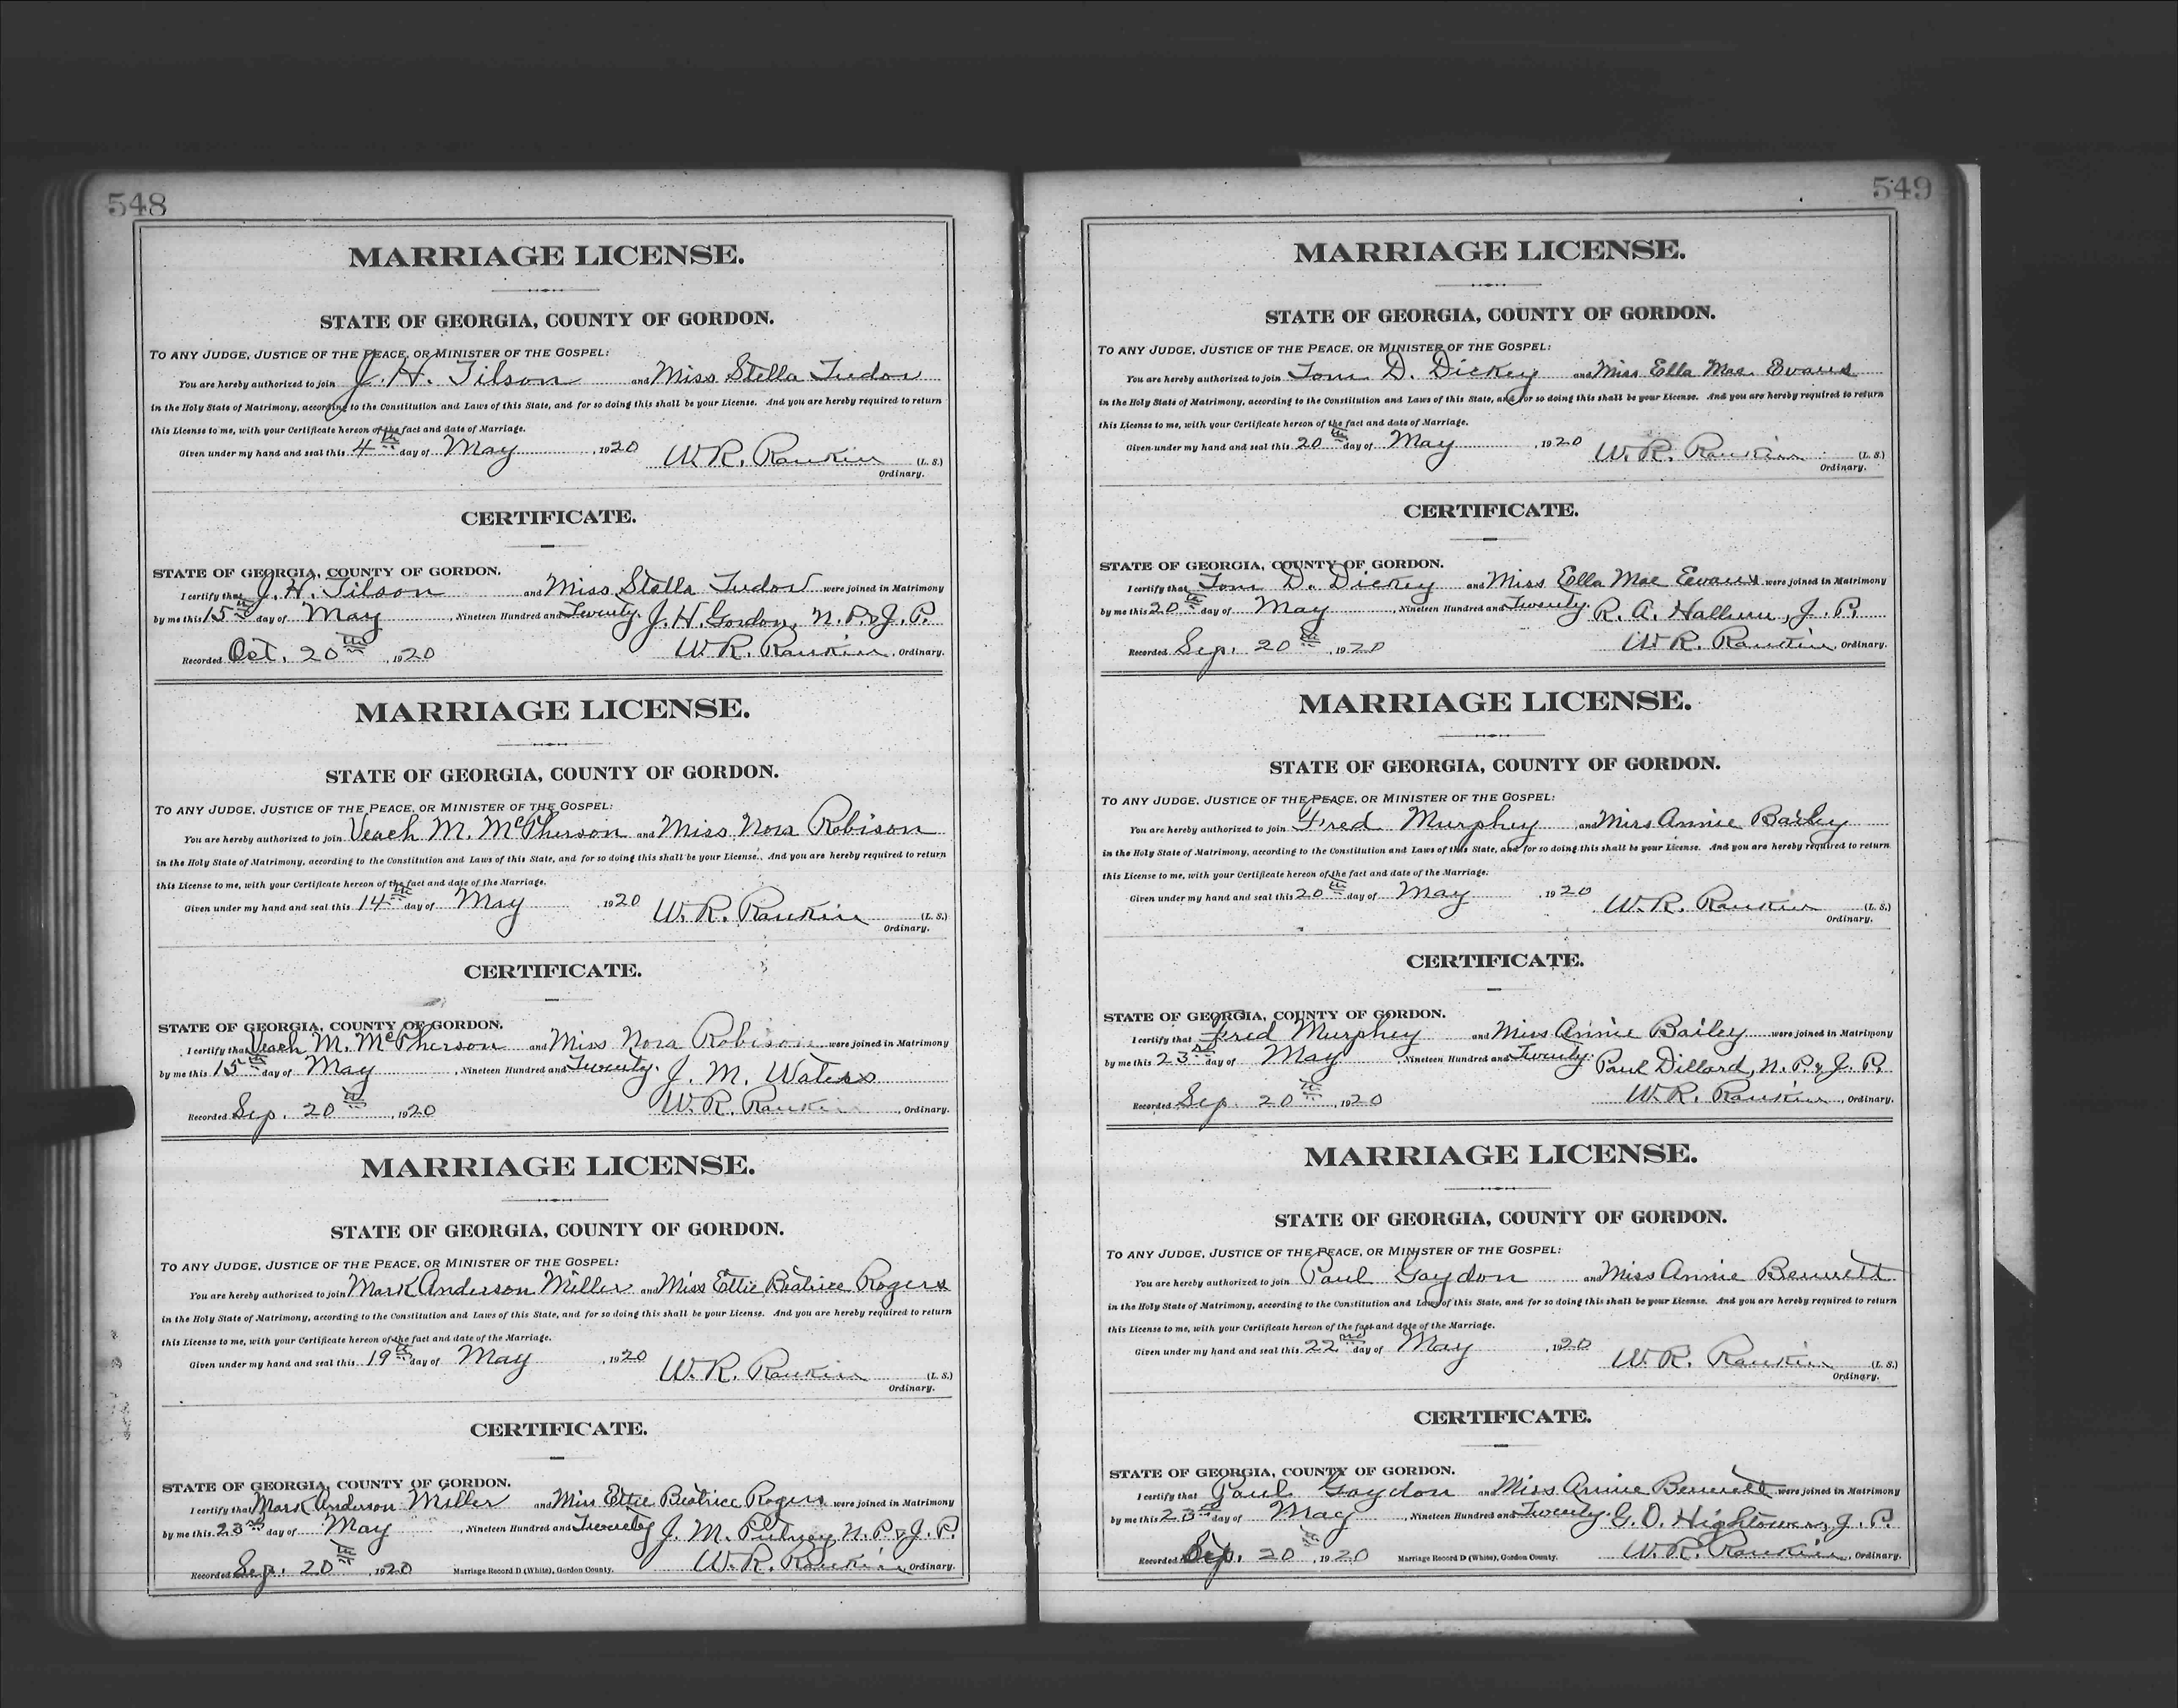 548
MARRIAGE LICENSE.
STATE OF GEORGIA, COUNTY OF GORDON.
TO ANY JUDGE, JUSTICE OF THE PEACE, OR MINISTER OF THE GOSPEL:
You are hereby authorized to join J. H. Tilson and Miss Stella Tudor
in the Holy State of Matrimony, according to the Constitution and Laws of this State, and for so doing this shall be your License. And you are hereby required to return
this License to me, with your Certificate hereon of the fact and date of Marriage.
Given under my hand and seal this 4th day of May, 1920 W. R. Rankin (L. S.)
Ordinary.
CERTIFICATE.
STATE OF GEORGIA, COUNTY OF GORDON.
I certify that J. H. Tilson and Miss Stella Tudor were joined in Matrimony
by me this 15th day of May, Nineteen Hundred and Twenty. J. H. Gordon, N. P. & J. P.
Recorded Oct. 20th, 1920 W. R. Rankin, Ordinary.
MARRIAGE LICENSE.
STATE OF GEORGIA, COUNTY OF GORDON.
TO ANY JUDGE, JUSTICE OF THE PEACE, OR MINISTER OF THE GOSPEL:
You are hereby authorized to join Veach M. McPherson and Miss Nora Robison
in the Holy State of Matrimony, according to the Constitution and Laws of this State, and for so doing this shall be your License. And you are hereby required to return
this License to me, with your Certificate hereon of the fact and date of the Marriage.
Given under my hand and seal this 14th day of May, 1920 W. R. Rankin (L. S.)
Ordinary.
CERTIFICATE.
STATE OF GEORGIA, COUNTY OF GORDON.
I certify that Veach M. McPherson and Miss Nora Robison were joined in Matrimony
by me this 15th day of May, Nineteen Hundred and Twenty. J. M. Waters
Recorded Sep. 20th, 1920 W. R. Rankin, Ordinary.
MARRIAGE LICENSE.
STATE OF GEORGIA, COUNTY OF GORDON.
TO ANY JUDGE, JUSTICE OF THE PEACE, OR MINISTER OF THE GOSPEL:
You are hereby authorized to join Mark Anderson Miller and Miss Ettie Beatrice Rogers
in the Holy State of Matrimony, according to the Constitution and Laws of this State, and for so doing this shall be your License. And you are hereby required to return
this License to me, with your Certificate hereon of the fact and date of the Marriage.
Given under my hand and seal this 19th day of May, 1920 W. R. Rankin (L. S.)
Ordinary.
CERTIFICATE.
STATE OF GEORGIA, COUNTY OF GORDON.
I certify that Mark Anderson Miller and Miss Ettie Beatrice Rogers were joined in Matrimony
by me this 23rd day of May, Nineteen Hundred and Twenty J. M. N. P. & J. P.
Recorded Sep. 20th, 1920 Marriage Record D (White), Gordon County. W. R. Rankin, Ordinary.
549
MARRIAGE LICENSE.
STATE OF GEORGIA, COUNTY OF GORDON.
TO ANY JUDGE, JUSTICE OF THE PEACE, OR MINISTER OF THE GOSPEL:
You are hereby authorized to join Tom D. Dickey and Miss Ella Mae Evans
in the Holy State of Matrimony, according to the Constitution and Laws of this State, and for so doing this shall be your License. And you are hereby required to return
this License to me, with your Certificate hereon of the fact and date of Marriage.
Given under my hand and seal this 20th day of May, 1920 W. R. Rankin (L. S.)
Ordinary.
CERTIFICATE.
STATE OF GEORGIA, COUNTY OF GORDON.
I certify that Tom D. Dickey and Miss Ella Mae Evans were joined in Matrimony
by me this 20th day of May, Nineteen Hundred and Twenty. R. A. Hallum, J. P.
Recorded Sep. 20th, 1920 W. R. Rankin, Ordinary.
MARRIAGE LICENSE.
STATE OF GEORGIA, COUNTY OF GORDON.
TO ANY JUDGE, JUSTICE OF THE PEACE, OR MINISTER OF THE GOSPEL:
You are hereby authorized to join Fred Murphey and Miss Annie Bailey
in the Holy State of Matrimony, according to the Constitution and Laws of this State, and for so doing this shall be your License. And you are hereby required to return
this License to me, with your Certificate hereon of the fact and date of the Marriage.
Given under my hand and seal this 20th day of May, 1920 W. R. Rankin (L. S.)
Ordinary.
CERTIFICATE.
STATE OF GEORGIA, COUNTY OF GORDON.
I certify that Fred Murphey and Miss Annie Bailey were joined in Matrimony
by me this 23rd day of May, Nineteen Hundred and Twenty. Paul Dillard, N. P. & J. P.
Recorded Sep. 20th, 1920 W. R. Rankin, Ordinary.
MARRIAGE LICENSE.
STATE OF GEORGIA, COUNTY OF GORDON.
TO ANY JUDGE, JUSTICE OF THE PEACE, OR MINISTER OF THE GOSPEL:
You are hereby authorized to join Paul Gaydon and Miss Annie Bennett
in the Holy State of Matrimony, according to the Constitution and Laws of this State, and for so doing this shall be your License. And you are hereby required to return
this License to me, with your Certificate hereon of the fact and date of the Marriage.
Given under my hand and seal this 22nd day of May, 1920 W. R. Rankin (L. S.)
Ordinary.
CERTIFICATE.
STATE OF GEORGIA, COUNTY OF GORDON.
I certify that Paul Gaydon and Miss Annie Bennett were joined in Matrimony
by me this 23rd day of May, Nineteen Hundred and Twenty. G. O. Hightower, J. P.
Recorded Sep. 20th, 1920 Marriage Record D (White), Gordon County. W. R. Rankin, Ordinary.